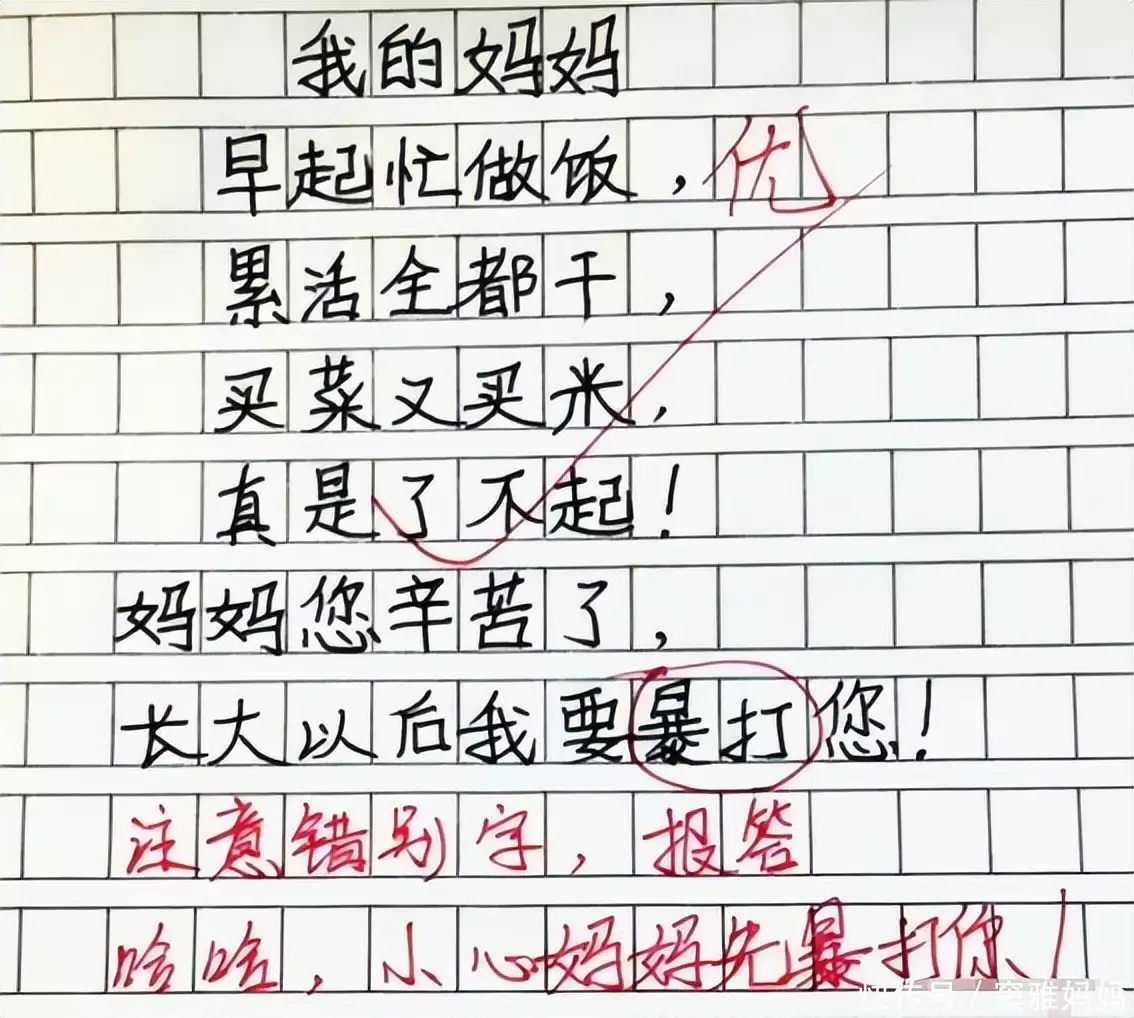 我的妈妈
早起忙做饭，优
累活全都干，
买菜又买米，
真是了不起！
妈妈您辛苦了，
长大以后我要暴打您！
注意错别字，报答
哈哈，小心妈妈先暴打你！
快传号／窦雅妈妈